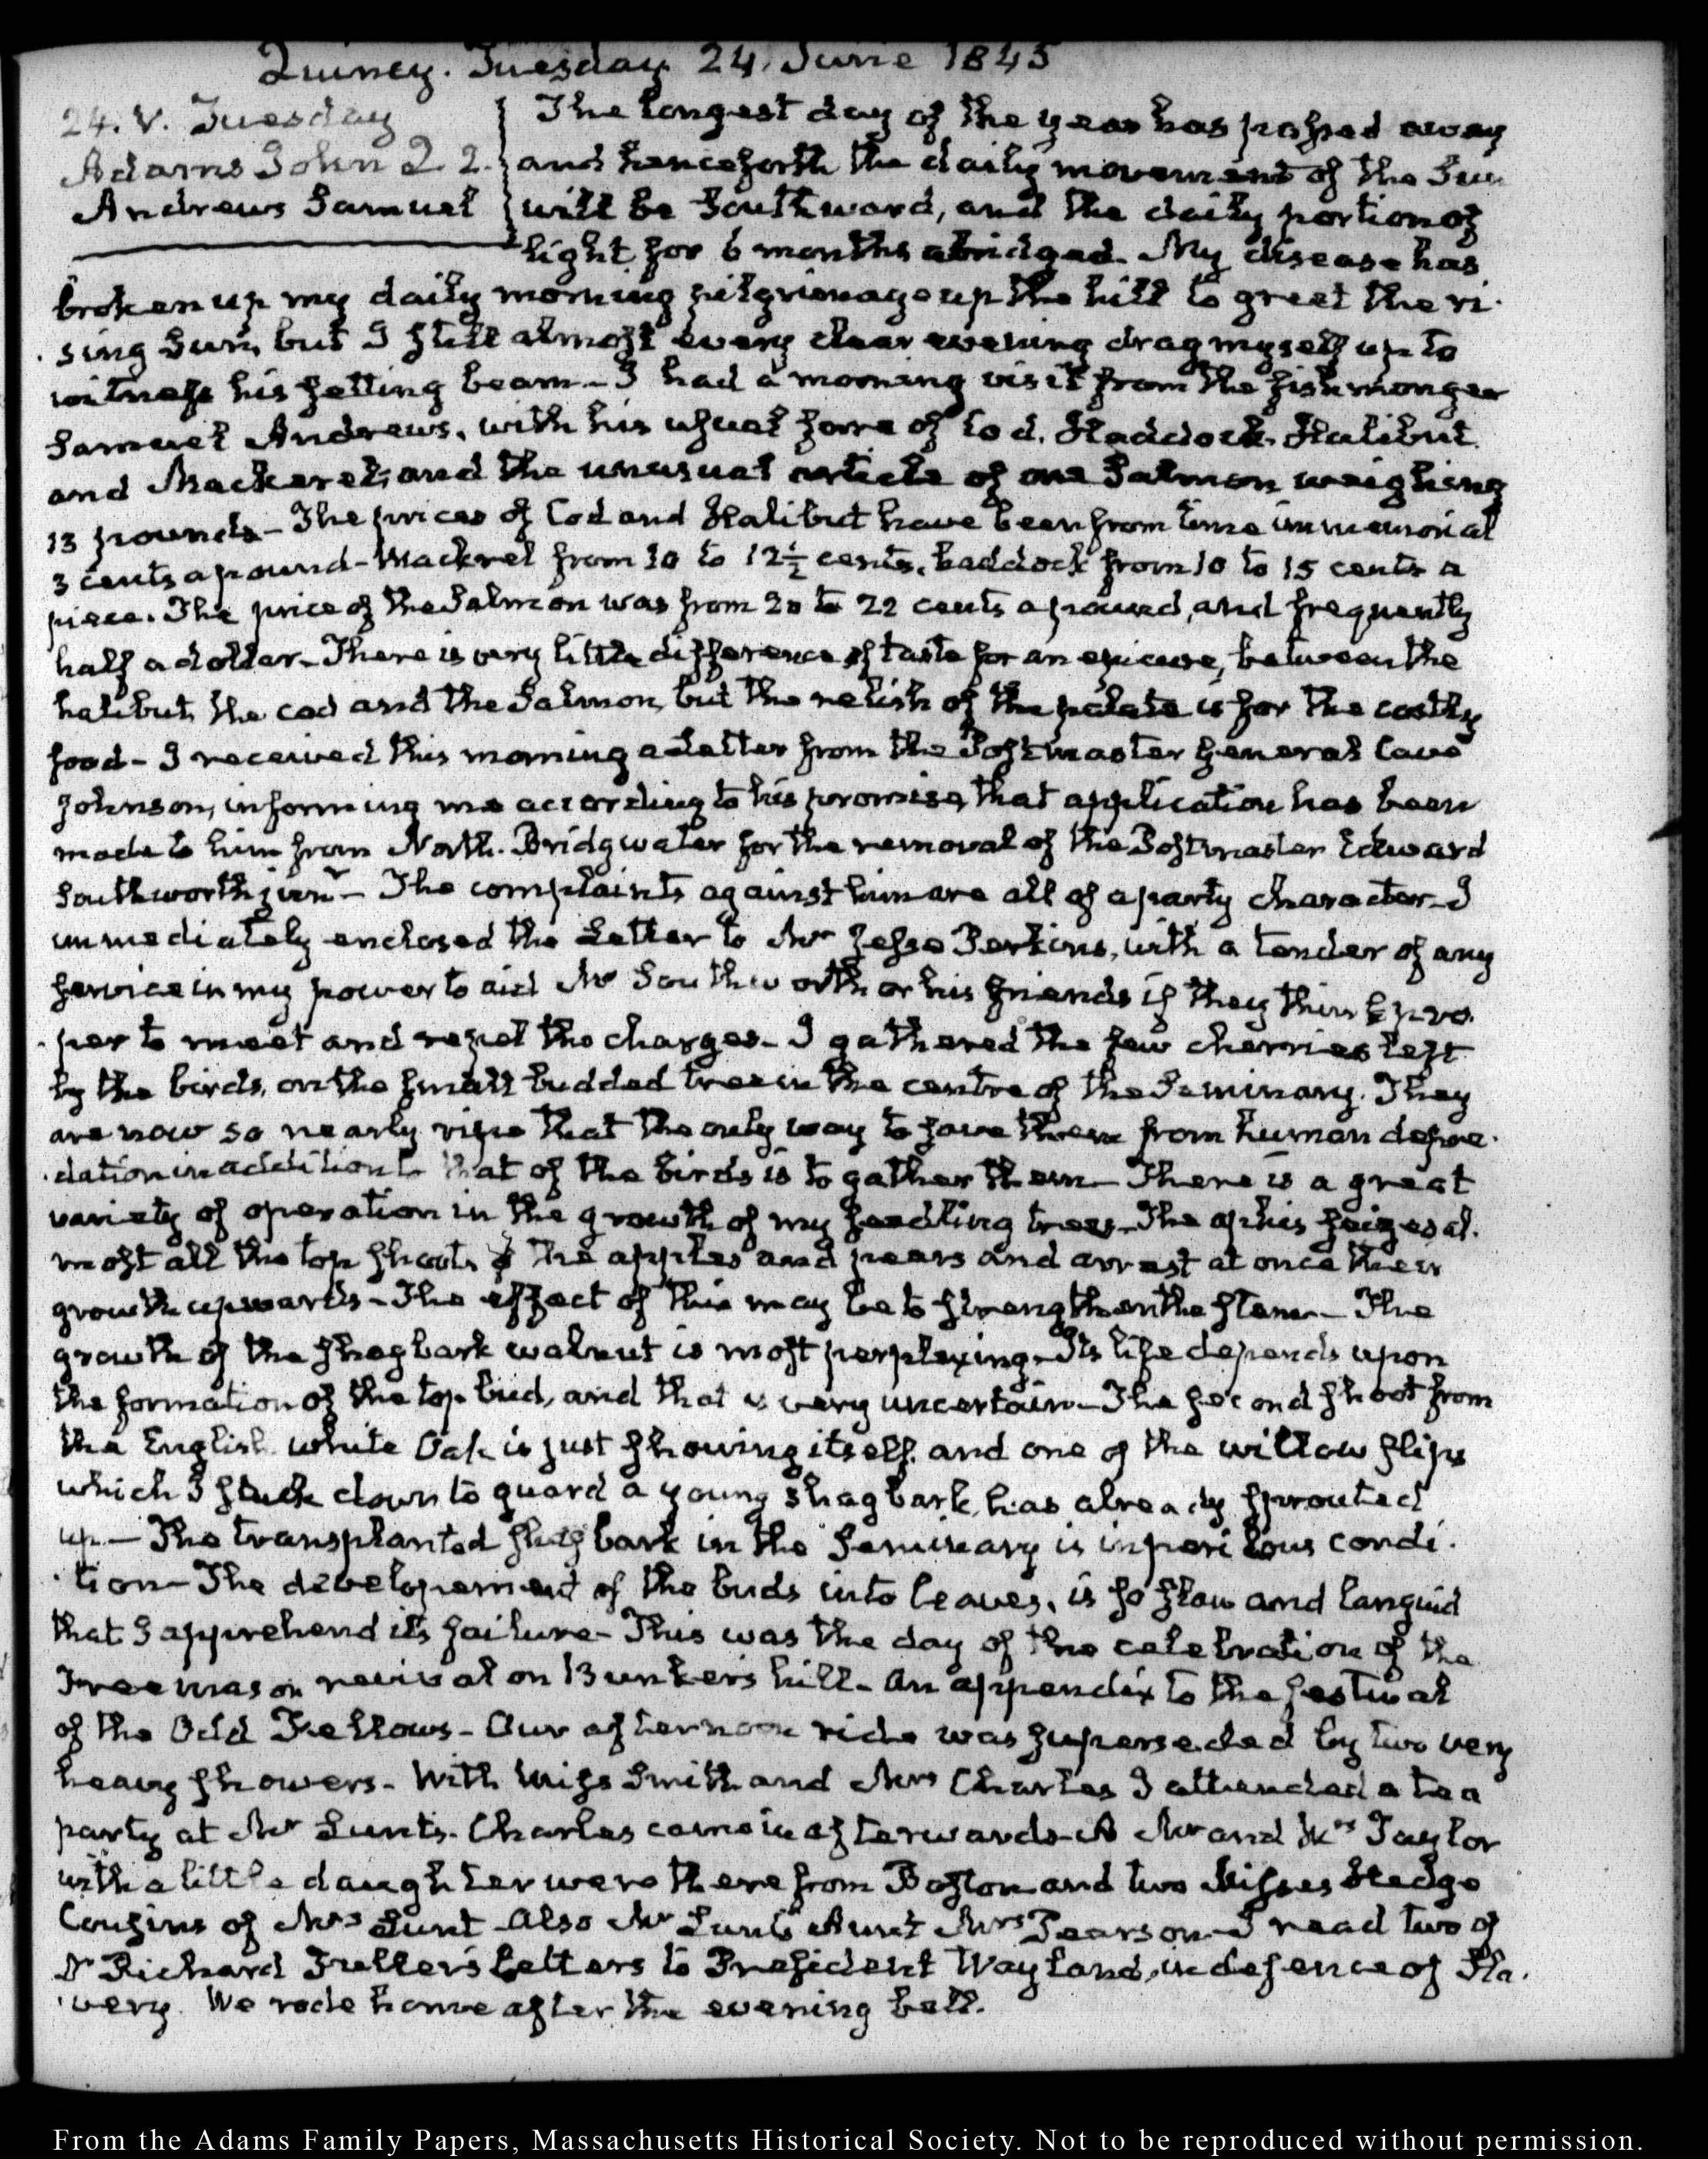 Quincy. Tuesday 24. June 1845
24. V. Tuesday
Adams John Q. 2.
Andrews Samuel
The longest day of the year has passed away
and henceforth the daily movement of the Sun
will be Southward, and the daily portion of
light for 6 months abridged. My disease has
broken up my daily morning pilgrimage up the hill to greet the ri-
-sing Sun, but I still almost every clear evening drag myself up to
witness his setting beam – I had a morning visit from the fishmonger
Samuel Andrews, with his usual fare of Cod, Haddock, Halibut
and Mackerel, and the unusual article of one Salmon weighing
13 pounds – The prices of Cod and Halibut have been from time immemorial
3 cents a pound – Mackrel from 10 to 12½ cents, haddock from 10 to 15 cents a
piece. The price of the Salmon was from 20 to 22 cents a pound, and frequently
half a dollar – There is very little difference of taste for an epicure, between the
halibut, the cod and the Salmon, but the relish of the palate is for the costly
food – I received this morning a Letter from the Postmaster General Cave
Johnson, informing me according to his promise, that application has been
made to him from North-Bridgwater for the removal of the Postmaster Edward
Southworth junr – The complaints against him are all of a party character – I
immediately enclosed the Letter to Mr Jesse Perkins, with a tender of any
service in my power to aid Mr Southworth or his friends if they think pro-
-per to meet and repel the charges – I gathered the few cherries left
by the birds, on the small budded tree in the centre of the Seminary. They
are now so nearly ripe that the only way to save them from human depre-
-dation in addition to that of the birds is to gather them – There is a great
variety of operation in the growth of my seedling trees – The aphis seizes al-
most all the top shoots of the apples and pears and arrest at once their
growth upwards – The effect of this may be to strengthen the stem – The
growth of the shagbark walnut is most perplexing – Its life depends upon
the formation of the top bud, and that is very uncertain – The second shoot from
the English white Oak is just showing itself, and one of the willow slips
which I stuck down to guard a young shagbark, has already sprouted
up – The transplanted shagbark in the Seminary is in perilous condi-
-tion – The developement of the buds into leaves, is so slow and languid
that I apprehend its failure – This was the day of the celebration of the
Freemason revival on Bunker's hill – An appendix to the festival
of the Odd Fellows – Our afternoon ride was superseded by two very
heavy showers – With Miss Smith and Mrs Charles I attended a tea
party at Mr Lunt's. Charles came in afterwards – A Mr and Mrs Taylor
with a little daughter were there from Boston and two Misses Hedge
Cousins of Mrs Lunt – Also Mr Lunt's Aunt Mrs Pearson – I read two of
Dr Richard Fuller's Letters to President Wayland, in defence of Sla-
-very. We rode home after the evening bell.
From the Adams Family Papers, Massachusetts Historical Society. Not to be reproduced without permission.